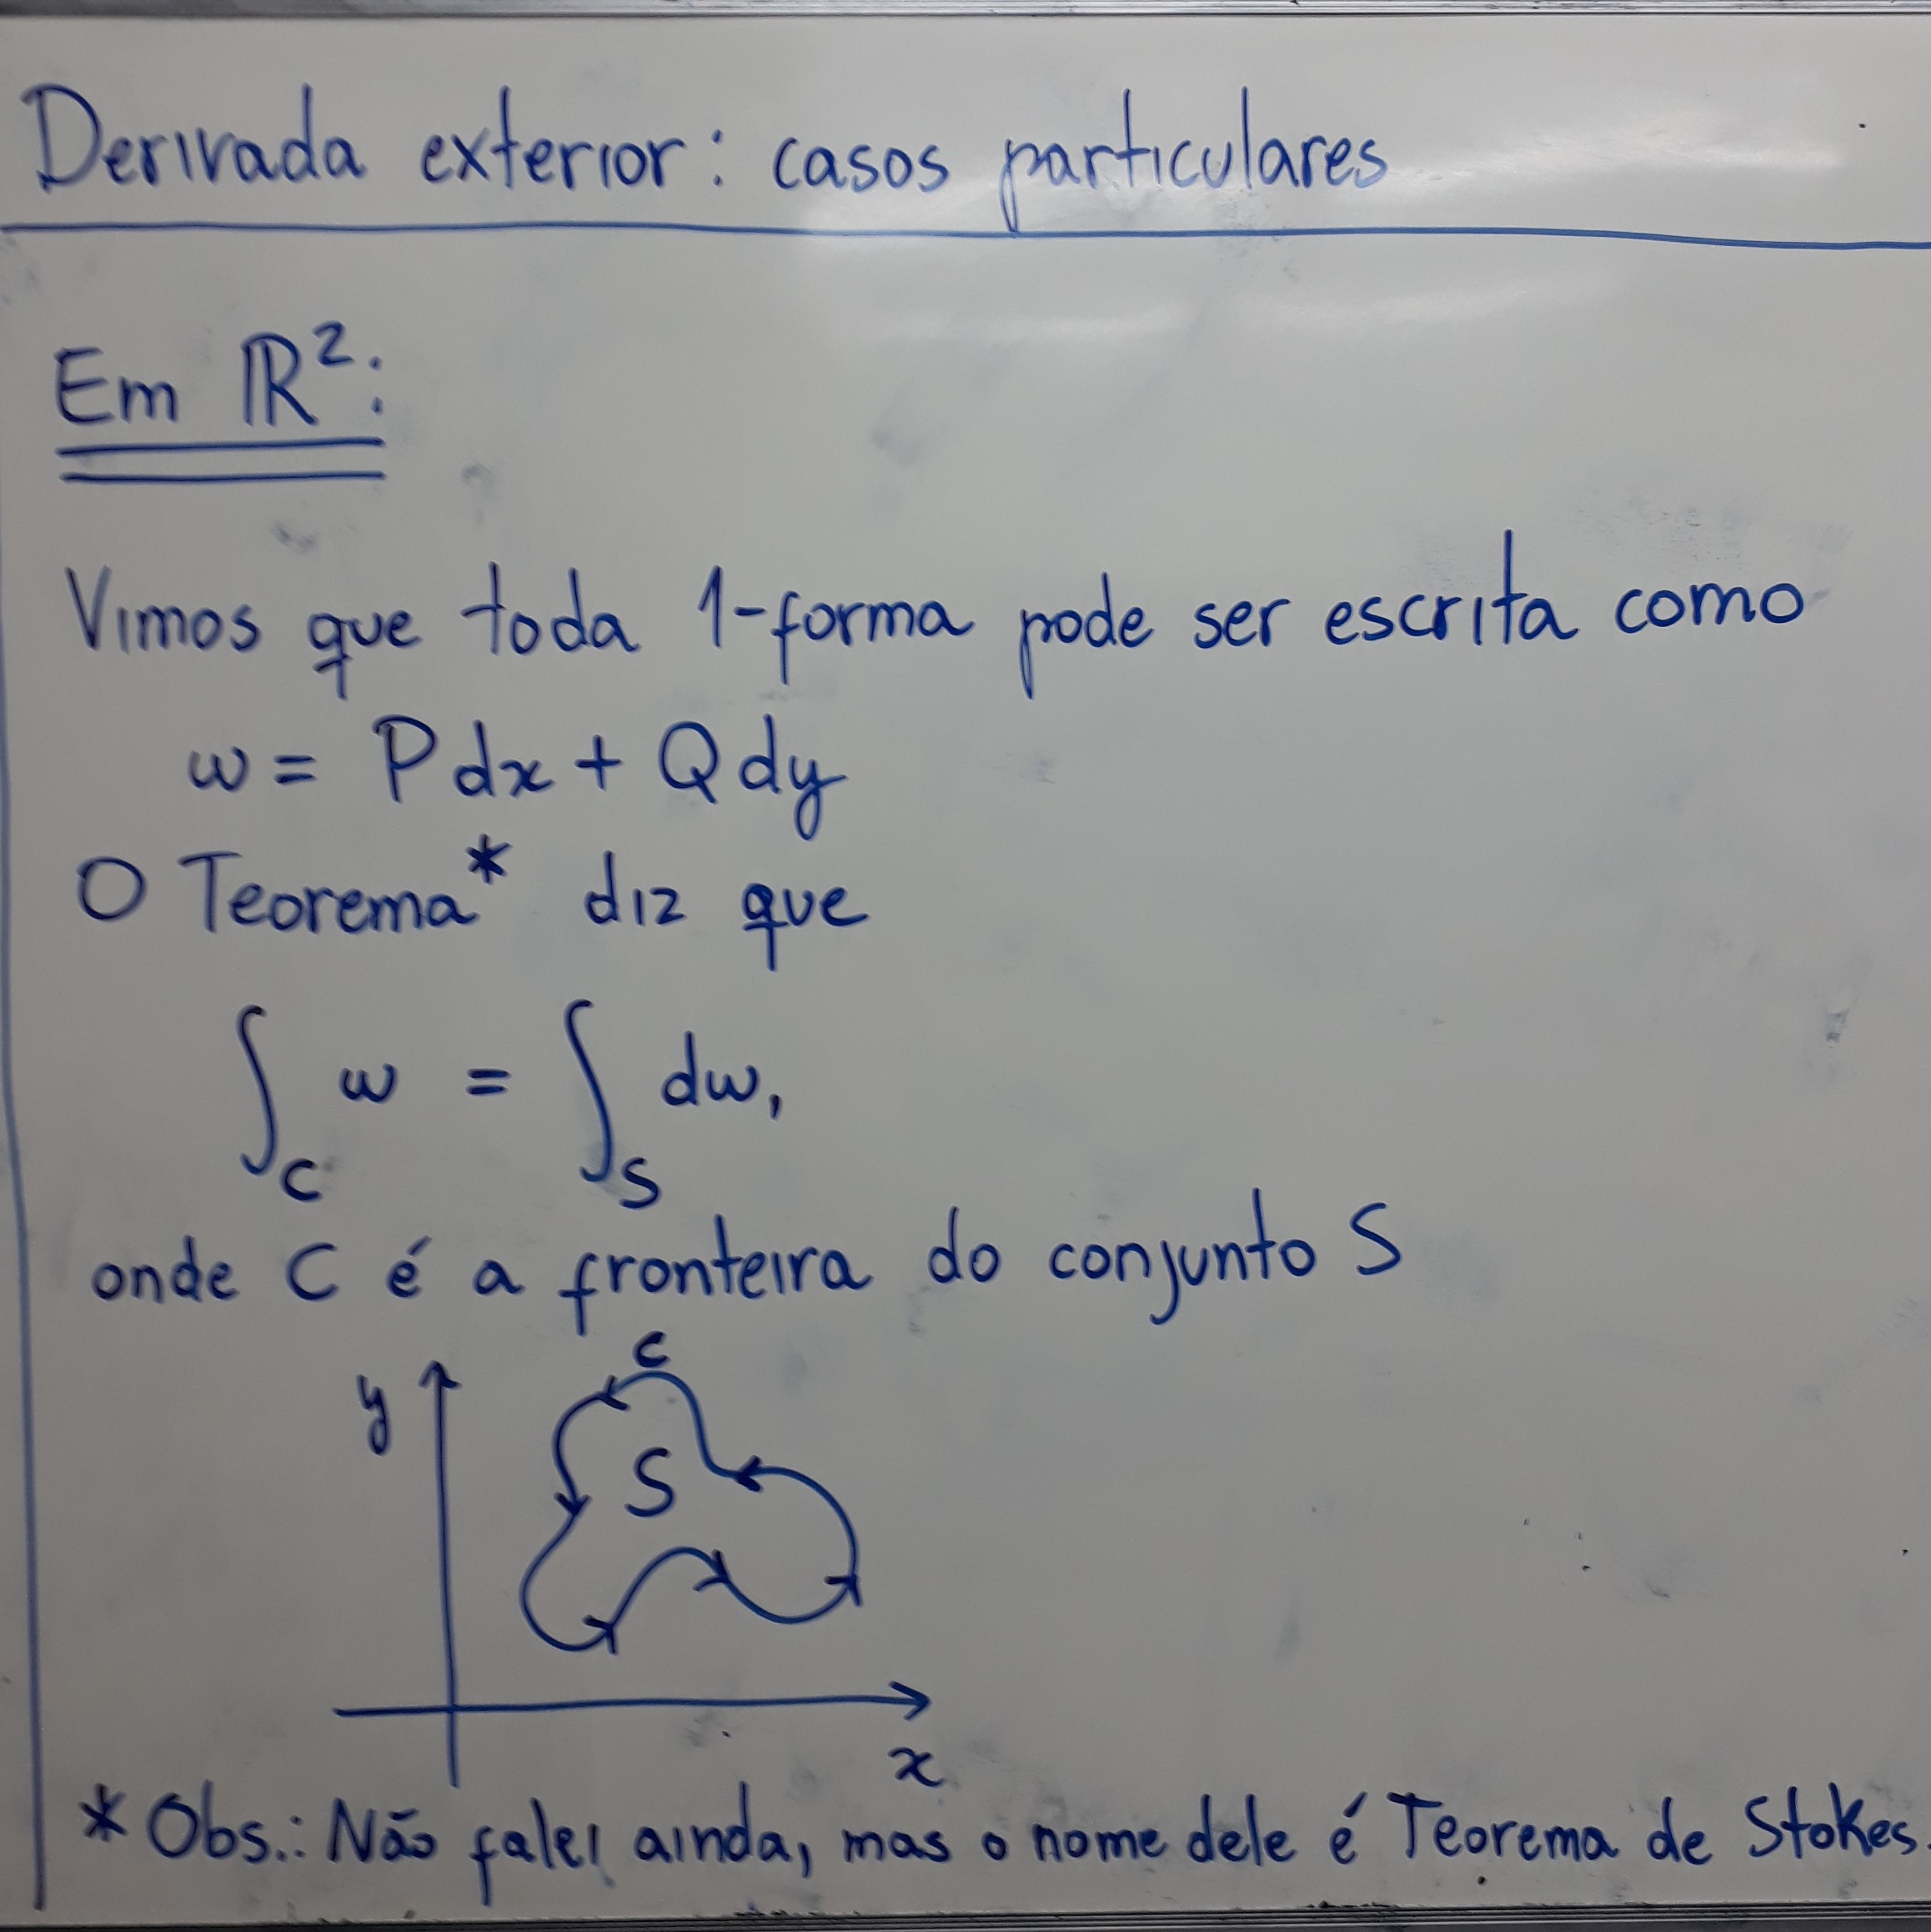 Derivada exterior: casos particulares
Em ℝ²:
Vimos que toda 1-forma pode ser escrita como
ω = P dx + Q dy
O Teorema* diz que
∫_C ω = ∫_S dω,
onde C é a fronteira do conjunto S
C
y
S
x
* Obs.: Não falei ainda, mas o nome dele é Teorema de Stokes.